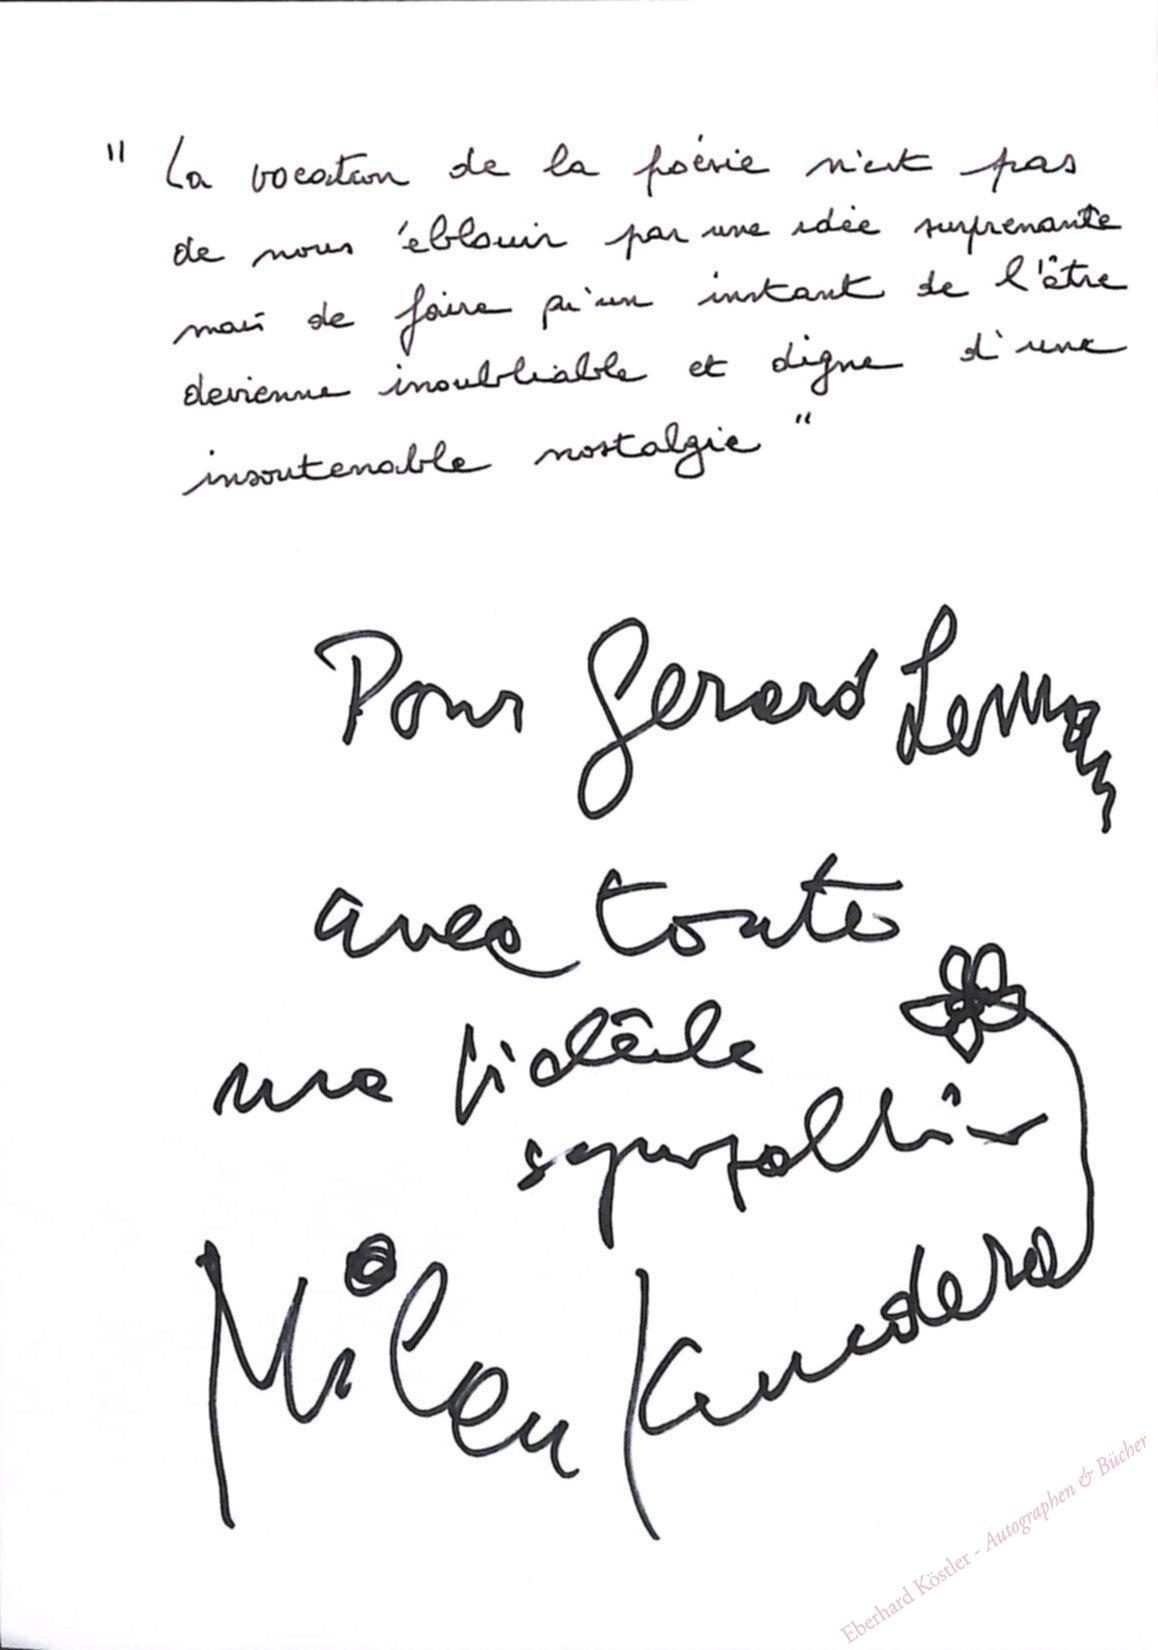 " La vocation de la poésie n'est pas
de nous éblouir par une idée surprenante
mais de faire qu'un instant de l'être
devienne inoubliable et digne d'une
insoutenable nostalgie "
Pour Gerard
avec toute
une fidèle
sympathie
Milan Kundera
Eberhard Köstler - Autographen & Bücher